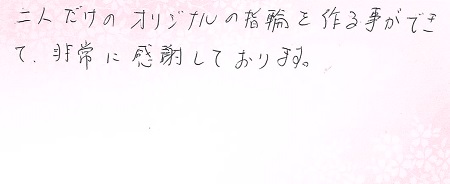 二人だけのオリジナルの指輪を作る事ができ
て、非常に感謝しております。